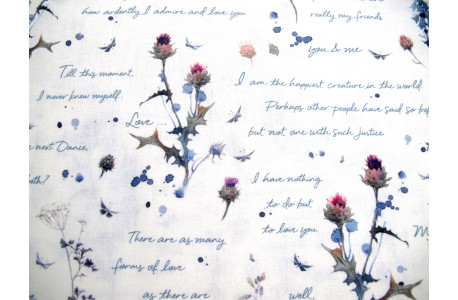 how ardently I admire and love you
really my friends
you & me
Till this moment
I never knew myself.
I am the happiest creature in the world.
Perhaps other people have said so bef
but not one with such justice.
Love ...
e next Dance,
I have nothing
to do but
to love you
There are as many
forms of love
as there are
well